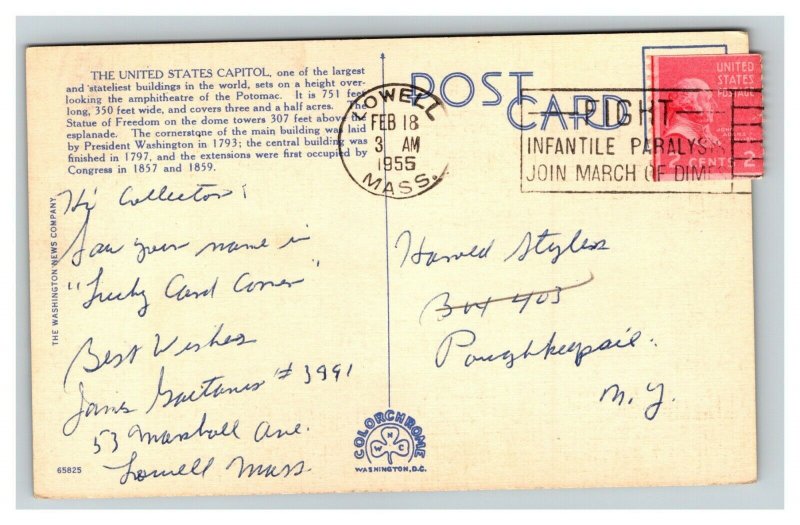 THE UNITED STATES CAPITOL, one of the largest
and stateliest buildings in the world, sets on a height over-
looking the amphitheatre of the Potomac. It is 751 feet
long, 350 feet wide, and covers three and a half acres. The
Statue of Freedom on the dome towers 307 feet above the
esplanade. The cornerstone of the main building was laid
by President Washington in 1793; the central building was
finished in 1797, and the extensions were first occupied by
Congress in 1857 and 1859.
POST
CARD
LOWELL
FEB 18
3 AM
1955
MASS.
FIGHT
INFANTILE PARALYSIS
JOIN MARCH OF DIMES
UNITED
STATES
POSTAGE
2 CENTS 2
THE WASHINGTON NEWS COMPANY
Hi Collector!
Saw your name in
"Lucky Card Corner"
Best Wishes
James Gaetanos # 3991
53 Marshall Ave.
Lowell Mass
65825
Harold Styles
Box 403
Poughkeepsie.
N.Y.
COLORCHROME
W N C
WASHINGTON, D.C.